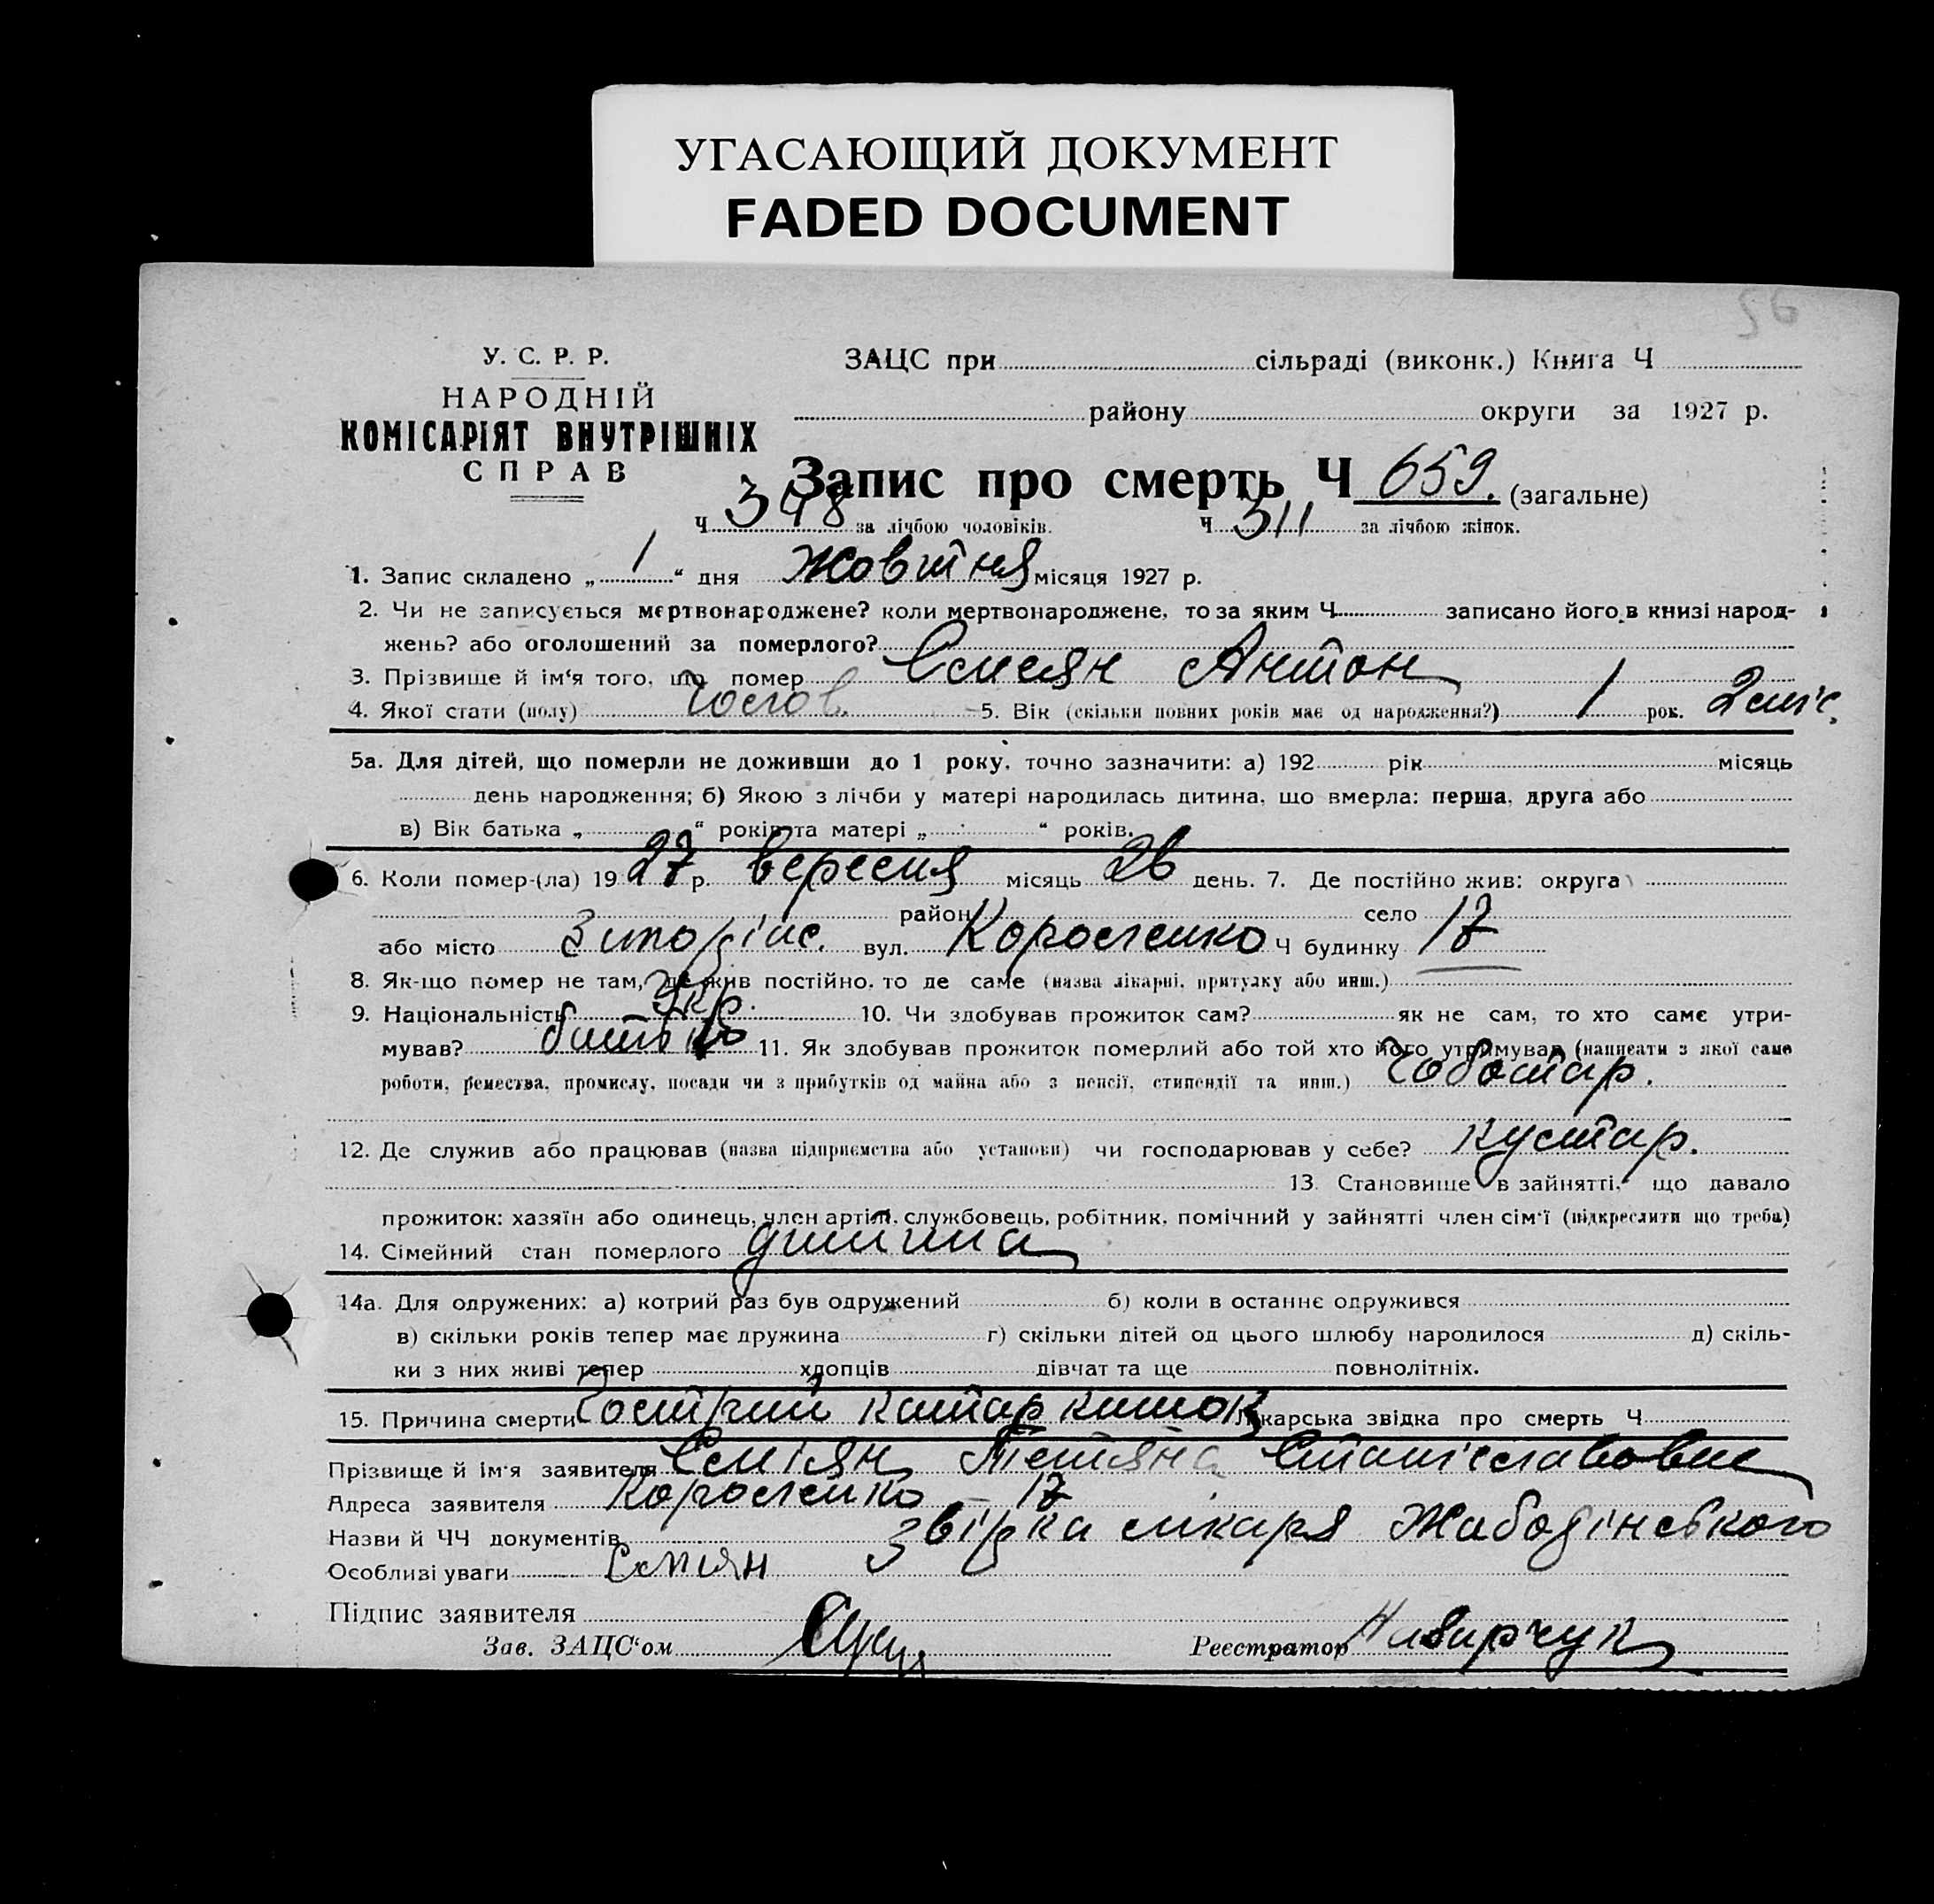 УГАСАЮЩИЙ ДОКУМЕНТ
FADED DOCUMENT
56
У. С. Р. Р.
НАРОДНІЙ
КОМІСАРІЯТ ВНУТРІШНІХ
СПРАВ
ЗАЦС при сільраді (виконк.) Книга Ч
району округи за 1927 р.
Запис про смерть Ч 659. (загальне)
Ч 348 за лічбою чоловіків. Ч 311 за лічбою жінок.
1. Запис складено „ 1 “ дня Жовтня місяця 1927 р.
2. Чи не записується мертвонароджене? коли мертвонароджене, то за яким Ч записано його в книзі народ-
жень? або оголошений за померлого?
3. Прізвище й ім‘я того, що помер Антон
4. Якої стати (полу) Чолов. 5. Вік (скільки повних років має од народження?) 1 рок. 2 міс.
5а. Для дітей, що померли не доживши до 1 року, точно зазначити: а) 192 рік місяць
день народження; б) Якою з лічби у матері народилась дитина, що вмерла: перша, друга або
в) Вік батька „ “ років та матері „ “ років.
6. Коли помер-(ла) 1927 р. вересня місяць 26 день. 7. Де постійно жив: округа
район село
або місто вул. Короленко Ч будинку 17
8. Як-що помер не там, де жив постійно, то де саме (назва лікарні, притулку або инш.)
9. Національність Укр. 10. Чи здобував прожиток сам? як не сам, то хто саме утри-
мував? батько 11. Як здобував прожиток померлий або той хто його утримував (написати з якої саме
роботи, ремества, промислу, посади чи з прибутків од майна або з пенсії, стипендії та инш.) Чоботар.
12. Де служив або працював (назва підприємства або установи) чи господарював у себе? Кустар.
13. Становище в зайнятті, що давало
прожиток: хазяїн або одинець, член артілі, службовець, робітник, помічний у зайнятті член сім‘ї (підкреслити що треба)
14. Сімейний стан померлого дитина
14а. Для одружених: а) котрий раз був одружений б) коли в останнє одружився
в) скільки років тепер має дружина г) скільки дітей од цього шлюбу народилося д) скіль-
ки з них живі тепер хлопців дівчат та ще повнолітніх.
15. Причина смерти Гострий катар кишок Лікарська звідка про смерть Ч
Прізвище й ім‘я заявителя Семіян Тетяна Станіславовна
Адреса заявителя Короленко – 17
Назви й ЧЧ документів Звідка лікаря
Особливі уваги Семіян
Підпис заявителя
Зав. ЗАЦС‘ом Реєстратор